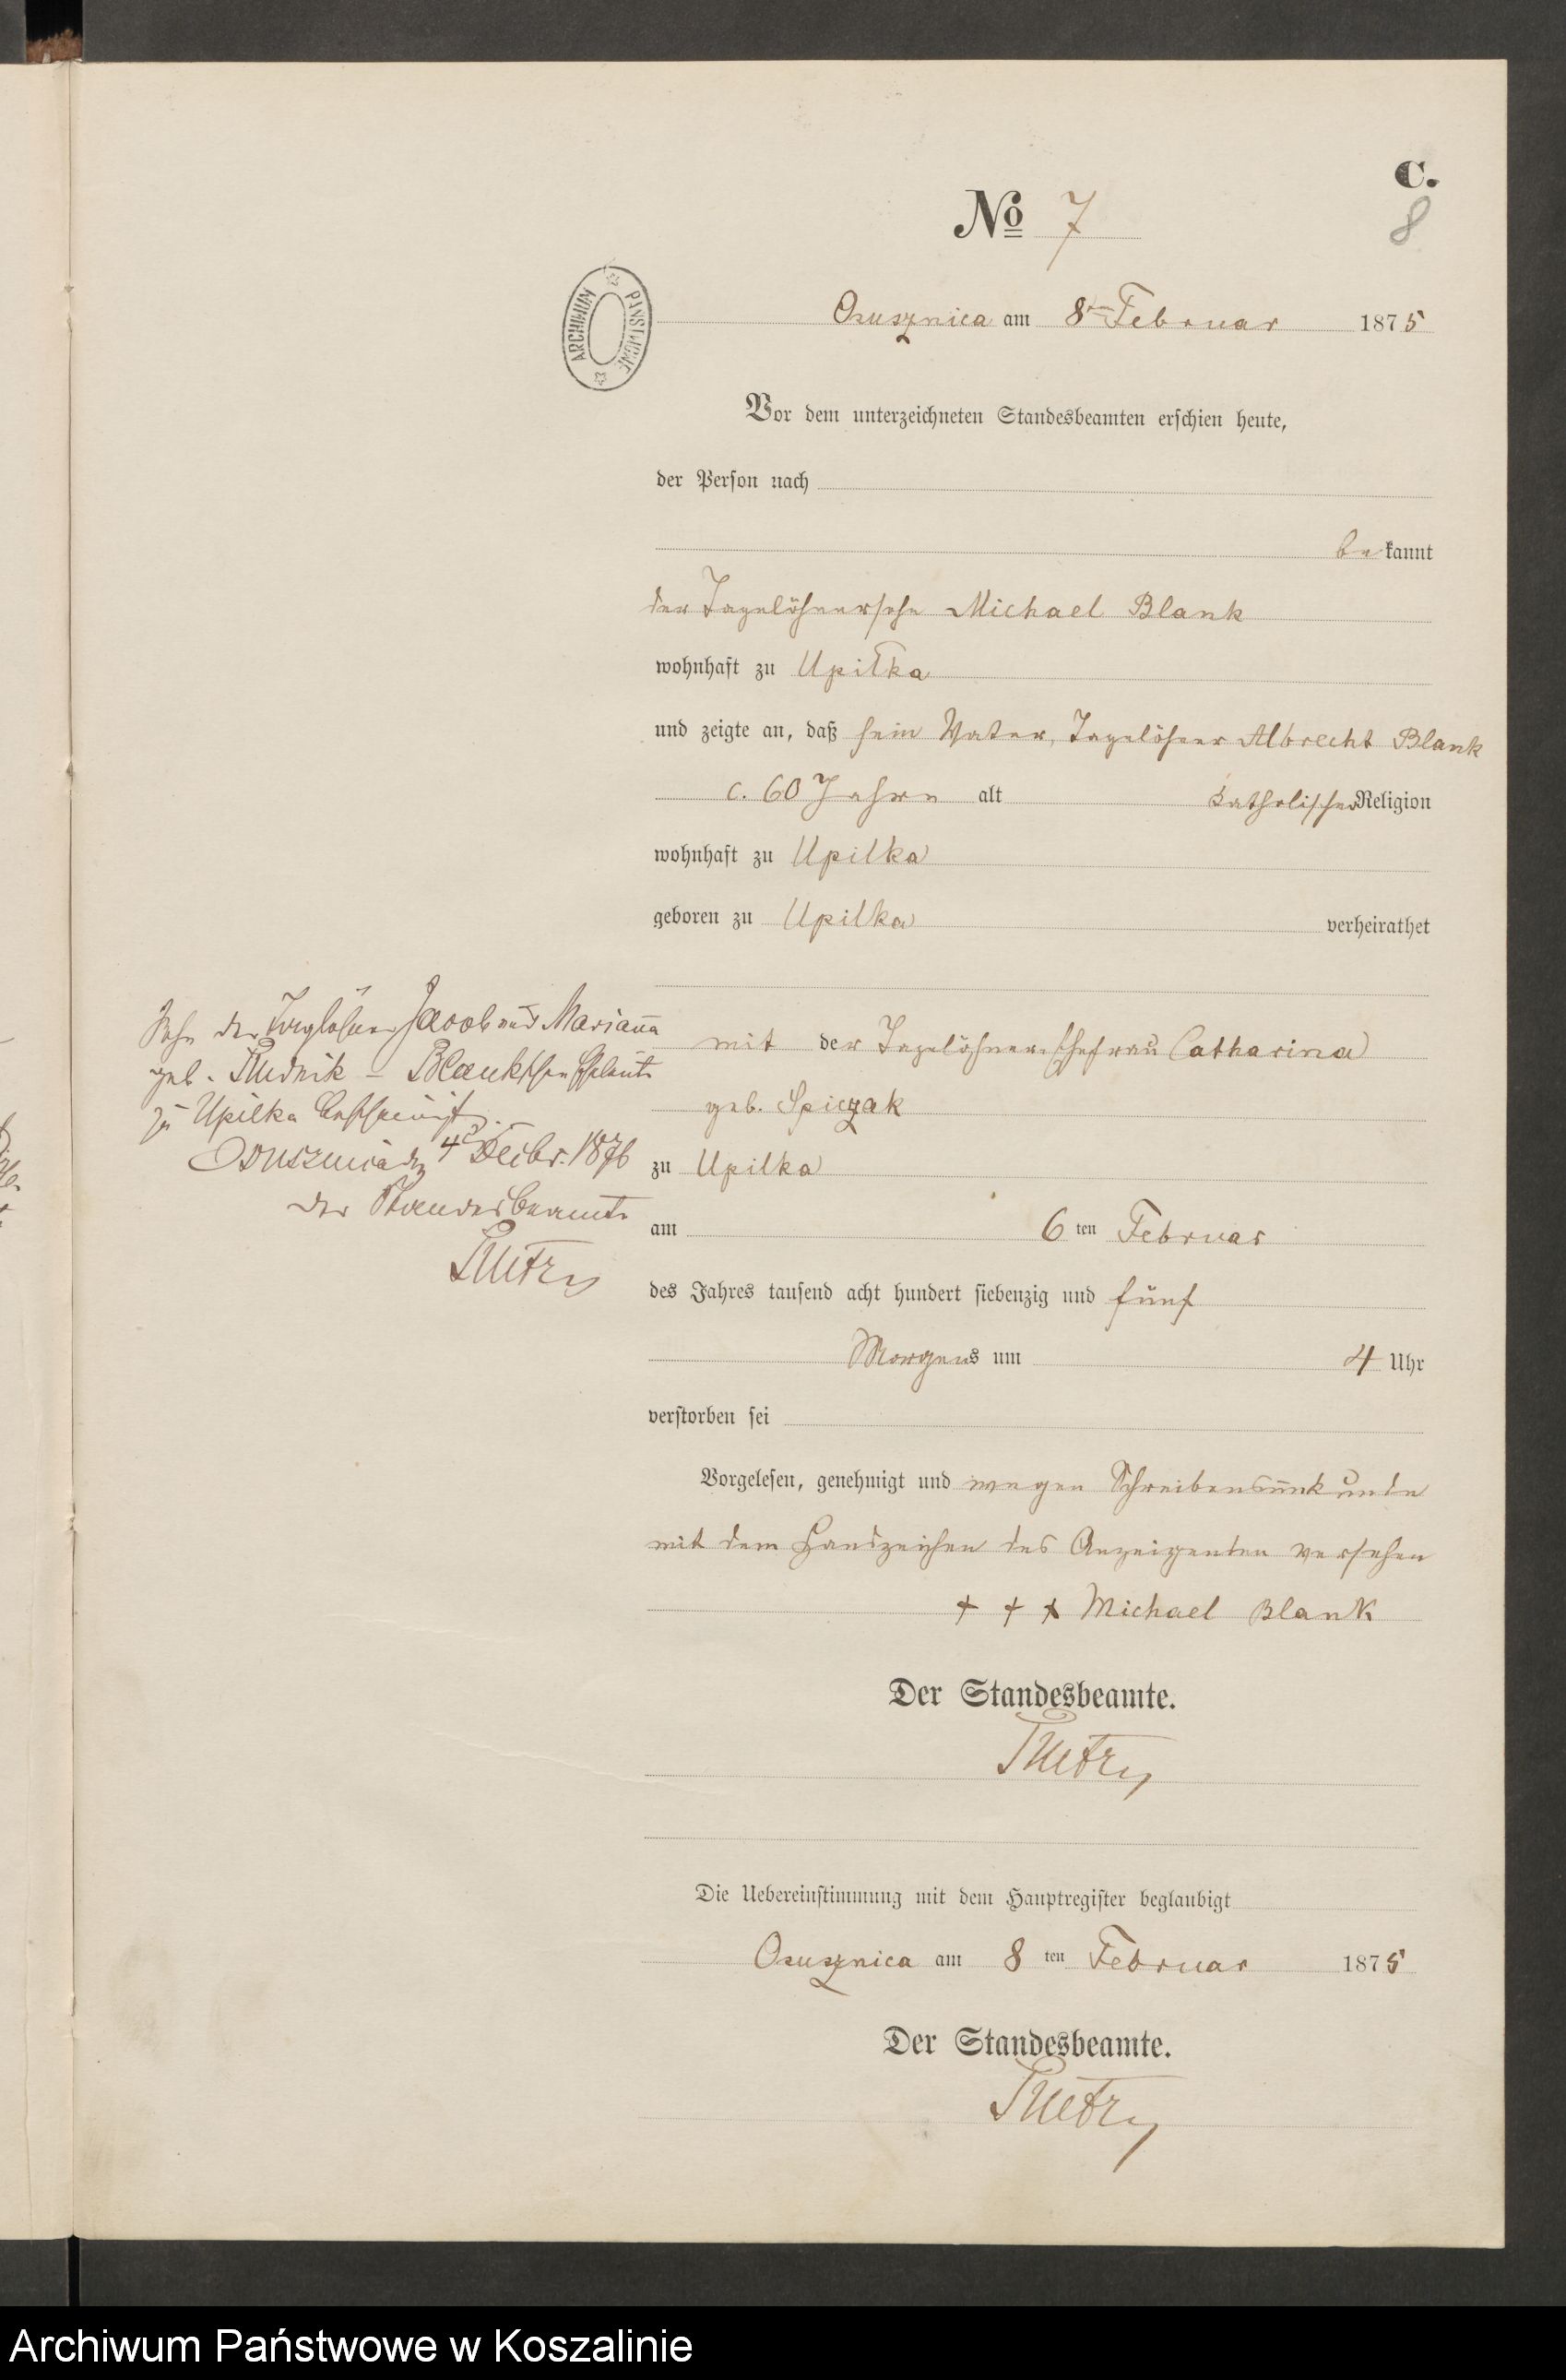 C.
No 7
8
ARCHIWUM PAŃSTWOWE
Osusznica am 8ten Februar 1875
Vor dem unterzeichneten Standesbeamten erschien heute,
der Person nach
bekannt
der Tagelöhnersohn Michael Blank
wohnhaft zu Upilka
und zeigte an, daß sein Vater, Tagelöhner Albrecht Blank
c. 60 Jahre alt katholischer Religion
wohnhaft zu Upilka
geboren zu Upilka verheirathet
mit der Tagelöhner Ehefrau Catharina
geb. Spiczak
zu Upilka
am 6ten Februar
des Jahres tausend acht hundert siebenzig und fünf
Morgens um 4 Uhr
verstorben sei
Sohn der Tagelöhner Jacob und Mariana
geb. Rudnik - Blankschen Eheleute
zu Upilka bescheinigt.
Osusznica den 4 Decbr. 1876
Der Standesbeamte
Vorgelesen, genehmigt und wegen Schreibensunkunde
mit dem Handzeichen des Anzeigenden versehen
+ + + Michael Blank
Der Standesbeamte.
Die Uebereinstimmung mit dem Hauptregister beglaubigt
Osusznica am 8ten Februar 1875
Der Standesbeamte.
Archiwum Państwowe w Koszalinie